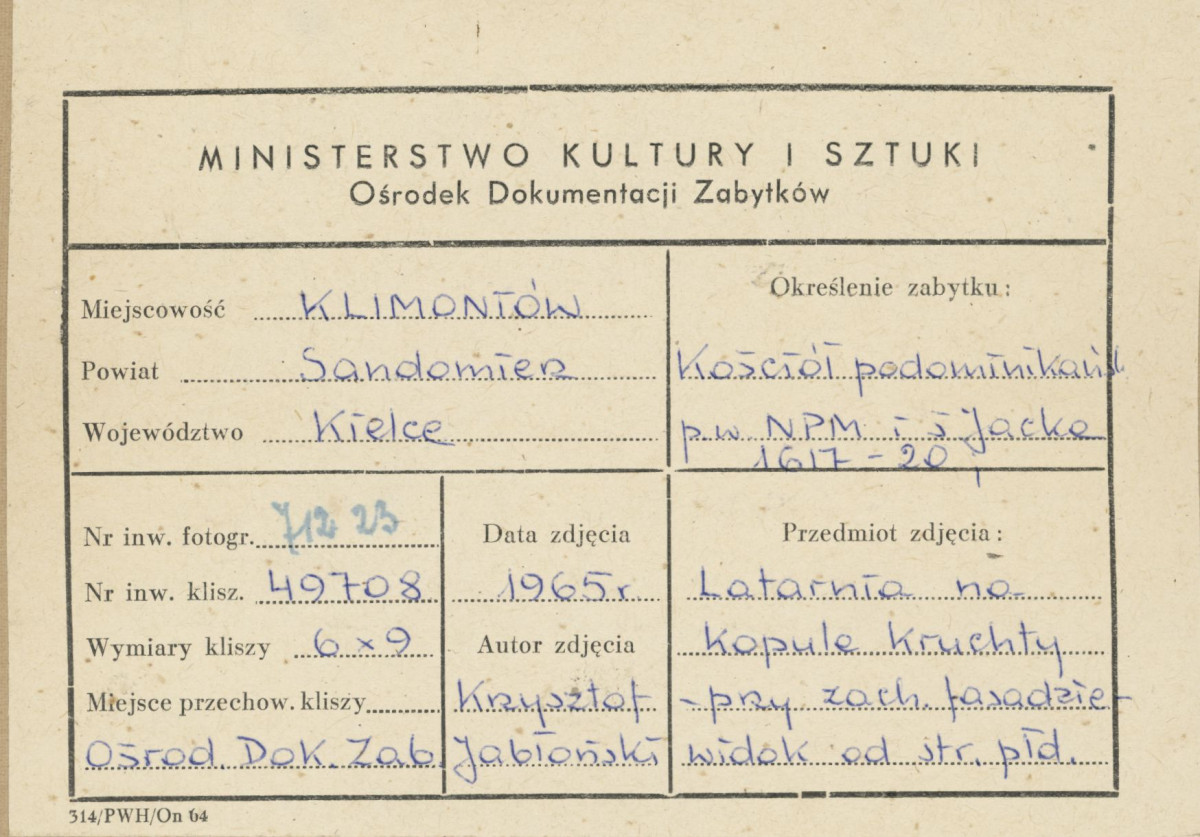 MINISTERSTWO KULTURY I SZTUKI
Ośrodek Dokumentacji Zabytków
Miejscowość KLIMONTÓW
Powiat Sandomierz
Województwo Kielce
Określenie zabytku:
Kościół podominikańsk
p.w. NPM i ś Jacka
1617-20
Nr inw. fotogr. 71223
Nr inw. klisz. 49708
Wymiary kliszy 6x9
Miejsce przechow. kliszy
Ośrod. Dok. Zab.
Data zdjęcia
1965r.
Autor zdjęcia
Krzysztof
Jabłoński
Przedmiot zdjęcia:
Latarnia na
kopule kruchty
- przy zach. fasadzie -
widok od str. płd.
314/PWH/On 64